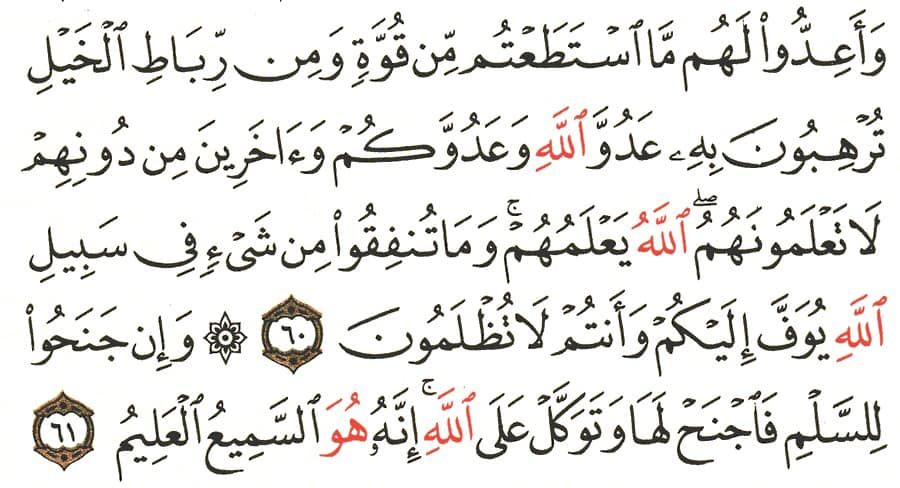 وَأَعِدُّوا۟ لَهُم مَّا ٱسْتَطَعْتُم مِّن قُوَّةٍ وَمِن رِّبَاطِ ٱلْخَيْلِ
تُرْهِبُونَ بِهِۦ عَدُوَّ ٱللَّهِ وَعَدُوَّكُمْ وَءَاخَرِينَ مِن دُونِهِمْ
لَا تَعْلَمُونَهُمُ ۖ ٱللَّهُ يَعْلَمُهُمْ ۚ وَمَا تُنفِقُوا۟ مِن شَىْءٍ فِى سَبِيلِ
ٱللَّهِ يُوَفَّ إِلَيْكُمْ وَأَنتُمْ لَا تُظْلَمُونَ ٦٠ ۞ وَإِن جَنَحُوا۟
لِلسَّلْمِ فَٱجْنَحْ لَهَا وَتَوَكَّلْ عَلَى ٱللَّهِ ۚ إِنَّهُۥ هُوَ ٱلسَّمِيعُ ٱلْعَلِيمُ ٦١